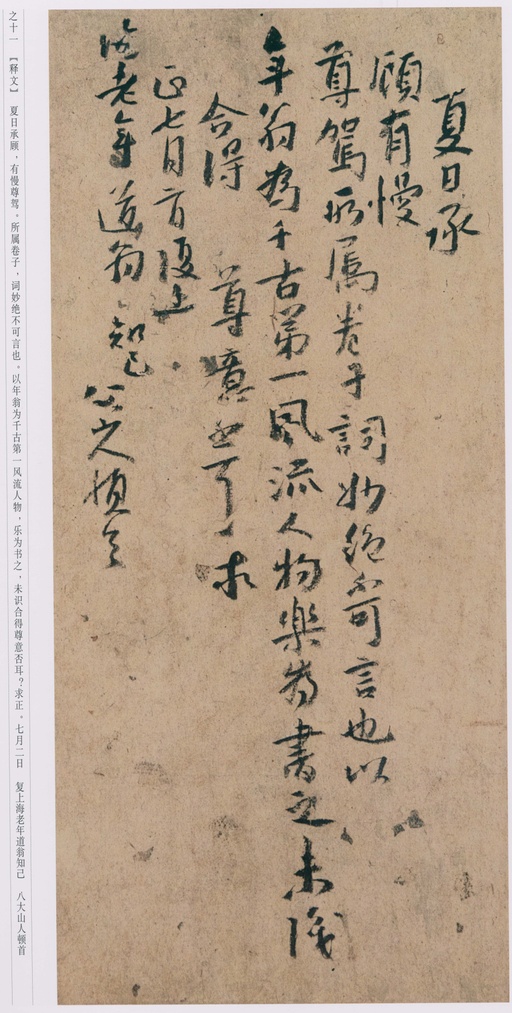 夏日承
顧有慢
尊駕所屬卷子詞妙絕不可言也以
年翁為千古第一風流人物樂為書之未識
合得 尊意否耳求
正七月二日復上
海老年道翁知己 八大山人頓首
之十一 【释文】 夏日承顾，有慢尊驾。所属卷子，词妙绝不可言也。以年翁为千古第一风流人物，乐为书之，未识合得尊意否耳？求正。七月二日 复上海老年道翁知己 八大山人顿首